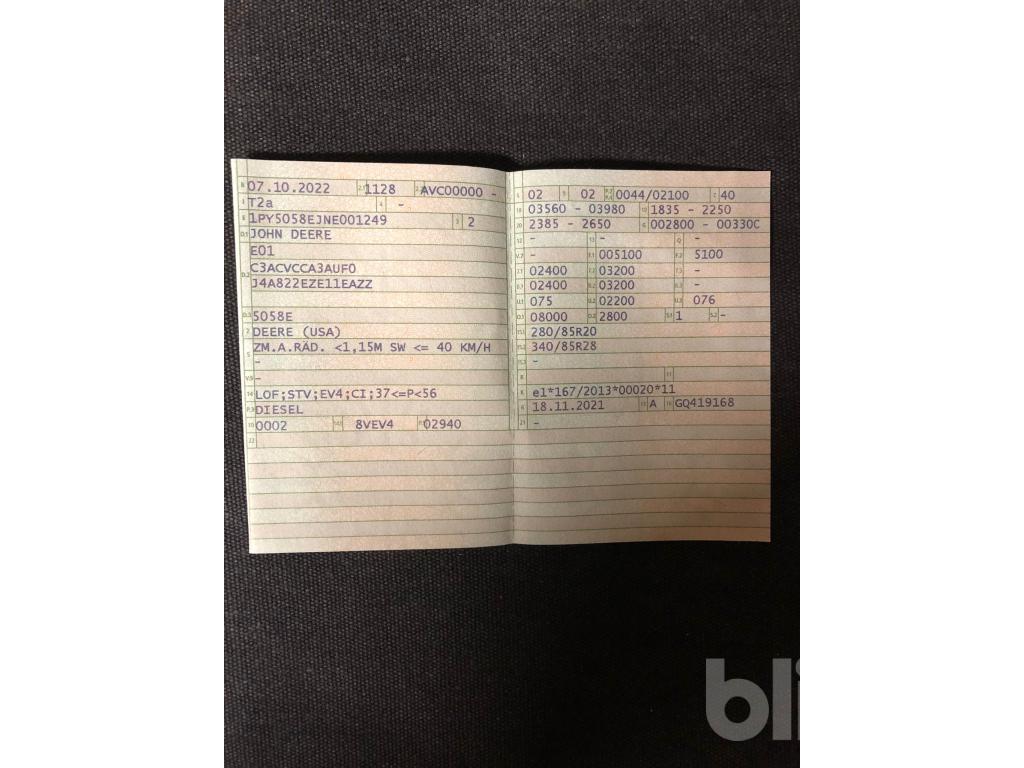 B 07.10.2022 2.1 1128 2.2 AVC00000 -
J T2a 4 -
E 1PY5058EJNE001249 3 2
D.1 JOHN DEERE
E01
D.2 C3ACVCCA3AUF0
J4A822EZE11EAZZ
D.3 5058E
2 DEERE (USA)
5 ZM.A.RÄD. <1,15M SW <= 40 KM/H
-
V.9 -
14 LOF;STV;EV4;CI;37<=P<56
P.3 DIESEL
10 0002 14.1 8VEV4 P.1 02940
22
L 02 9 02 P.2 P.4 0044/02100 T 40
18 03560 - 03980 19 1835 - 2250
20 2385 - 2650 G 002800 - 00330C
12 - 13 - Q -
V.7 - F.1 005100 F.2 5100
7.1 02400 7.2 03200 7.3 -
8.1 02400 8.2 03200 8.3 -
U.1 075 U.2 02200 U.3 076
O.1 08000 O.2 2800 S.1 1 S.2 -
15.1 280/85R20
15.2 340/85R28
15.3 -
R 11
K e1*167/2013*00020*11
6 18.11.2021 17 A 16 GQ419168
21 -
bli